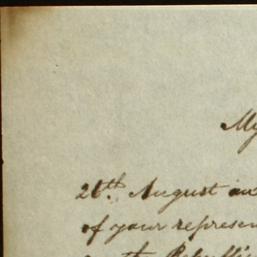 My
26th August an
of your represen